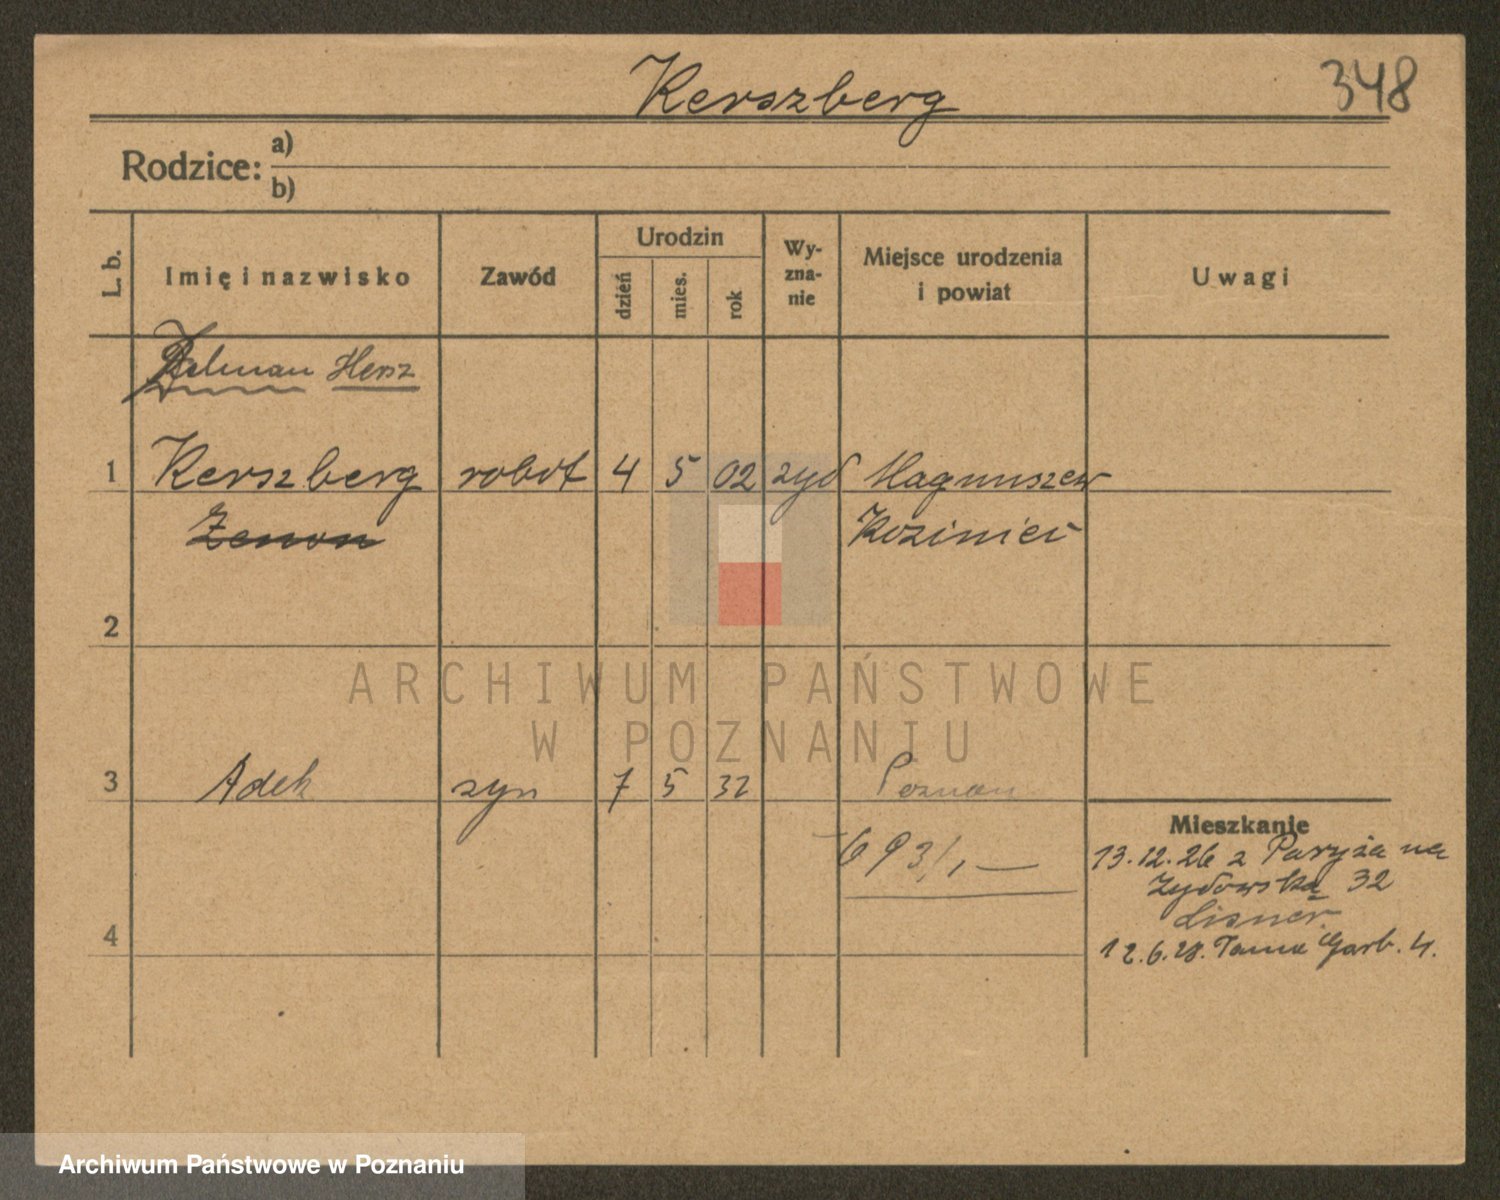 Kerszberg
348
Rodzice:
a)
b)
L. b.
Imię i nazwisko
Zawód
Urodzin
dzień
mies.
rok
Wy-
zna-
nie
Miejsce urodzenia
i powiat
Uwagi
Zelman Hersz
1 Kerszberg robot 4 5 02 żyd Magnuszew
Zenon Kozienice
2
ARCHIWUM PAŃSTWOWE
W POZNANIU
3 Adek syn 7 5 32 Poznań
Mieszkanie
693/,—
13.12.26 z Paryża na
Żydowska 32
Lisner
4
12.6.28. Tama Garb. 4.
Archiwum Państwowe w Poznaniu